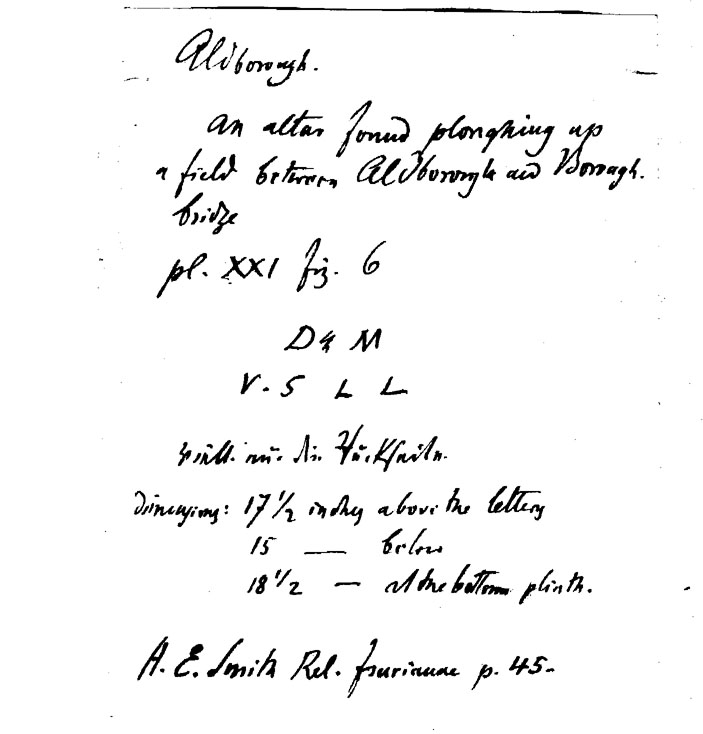 Aldborough.
an altar found ploughing up
a field between Aldborough and Borough-
bridge
pl. XXI fig. 6
D & M
V. S L L
vielt. nur die Rückseite.
Dimensions: 17 1/2 inches above the letters
15 — below
18 1/2 — at the bottom plinth.
H. E. Smith Rel. Isurianae p. 45.